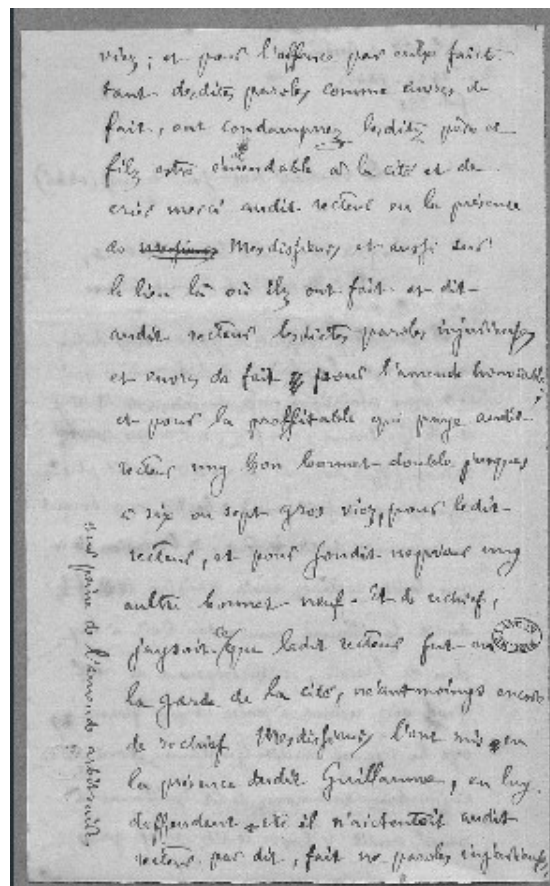 viez ; et pour l'offence par eulx faict
tant desdites paroles comme envers de
fait, ont condampnez lesdits père et
filz estre émendable à la cité et de
crier merci audit recteur en la présence
de Mesdisseurs et aussi sur
le lieu là où ilz ont fait et dit
audit recteur lesdictes paroles injurieuses
et envers de fait pour l'amende honorable ;
et pour la proffitable qui paye audit
recteur ung bon bonnet double jusques
à six ou sept gros viez, pour ledit
recteur, et pour sondit nepveux ung
aultre bonnet neuf. Et de rechief,
jaysoit ce que ledit recteur fut en
la garde de la cité, néantmoings encore
de rechief Mesdisseurs l'ont mis en
la présence dudit Guillaume, en luy
deffendant et il n'actentoit audit
recteur par dit, fait ne paroles injurieuses
sur peine de l'amende arbitraire